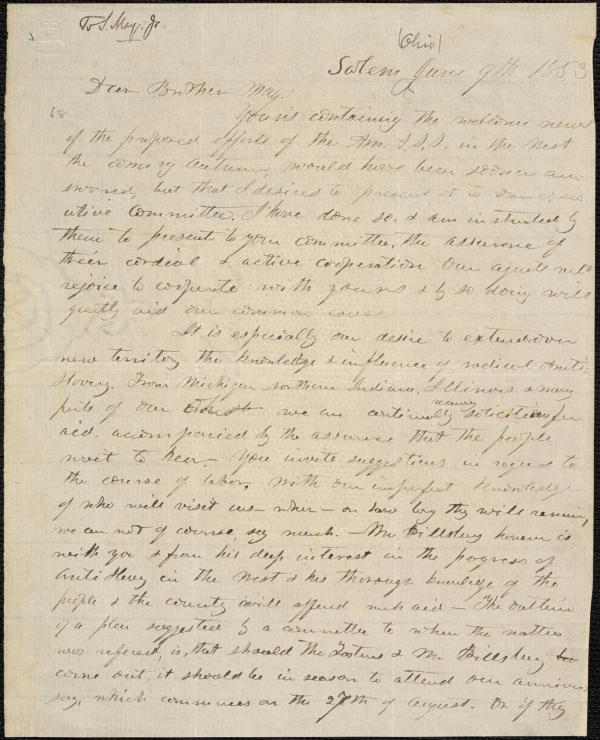 To S. May, Jr.
(Ohio)
Salem June 9th 1853
Dear Brother May,
Yours containing the welcome news
of the proposed efforts of the Am. A.S.S. in the West
the coming autumn, would have been sooner an-
swered, but that I desired to present it to our exec-
utive committee. I have done so, & am instructed by
them to present to your committee, the assurance of
their cordial & active cooperation. Our agents will
rejoice to cooperate with yours & by so doing will
greatly aid our common cause.
It is especially our desire to extend over
new territory the knowledge & influence of radical Anti-
Slavery. From Michigan, northern Indiana, Illinois & many
parts of our we are continually receiving solicitations for
aid, accompanied by the assurance that the people
want to hear. – You invite suggestions in regard to
the course of labor. With our imperfect knowledge
of who will visit us – when – or how long they will remain,
we can not of course, say much. – Mr Pillsbury however is
with you & from his deep interest in the progress of
Anti Slavery in the West & his thorough knowledge of the
people & the country will afford much aid – The outline
of a plan suggested by a committee to whom the matter
was refered, is, that should the Fosters & Mr Pillsbury
come out, it should be in season to attend our anniver-
sary, which commences on the 27th of August. Or if they